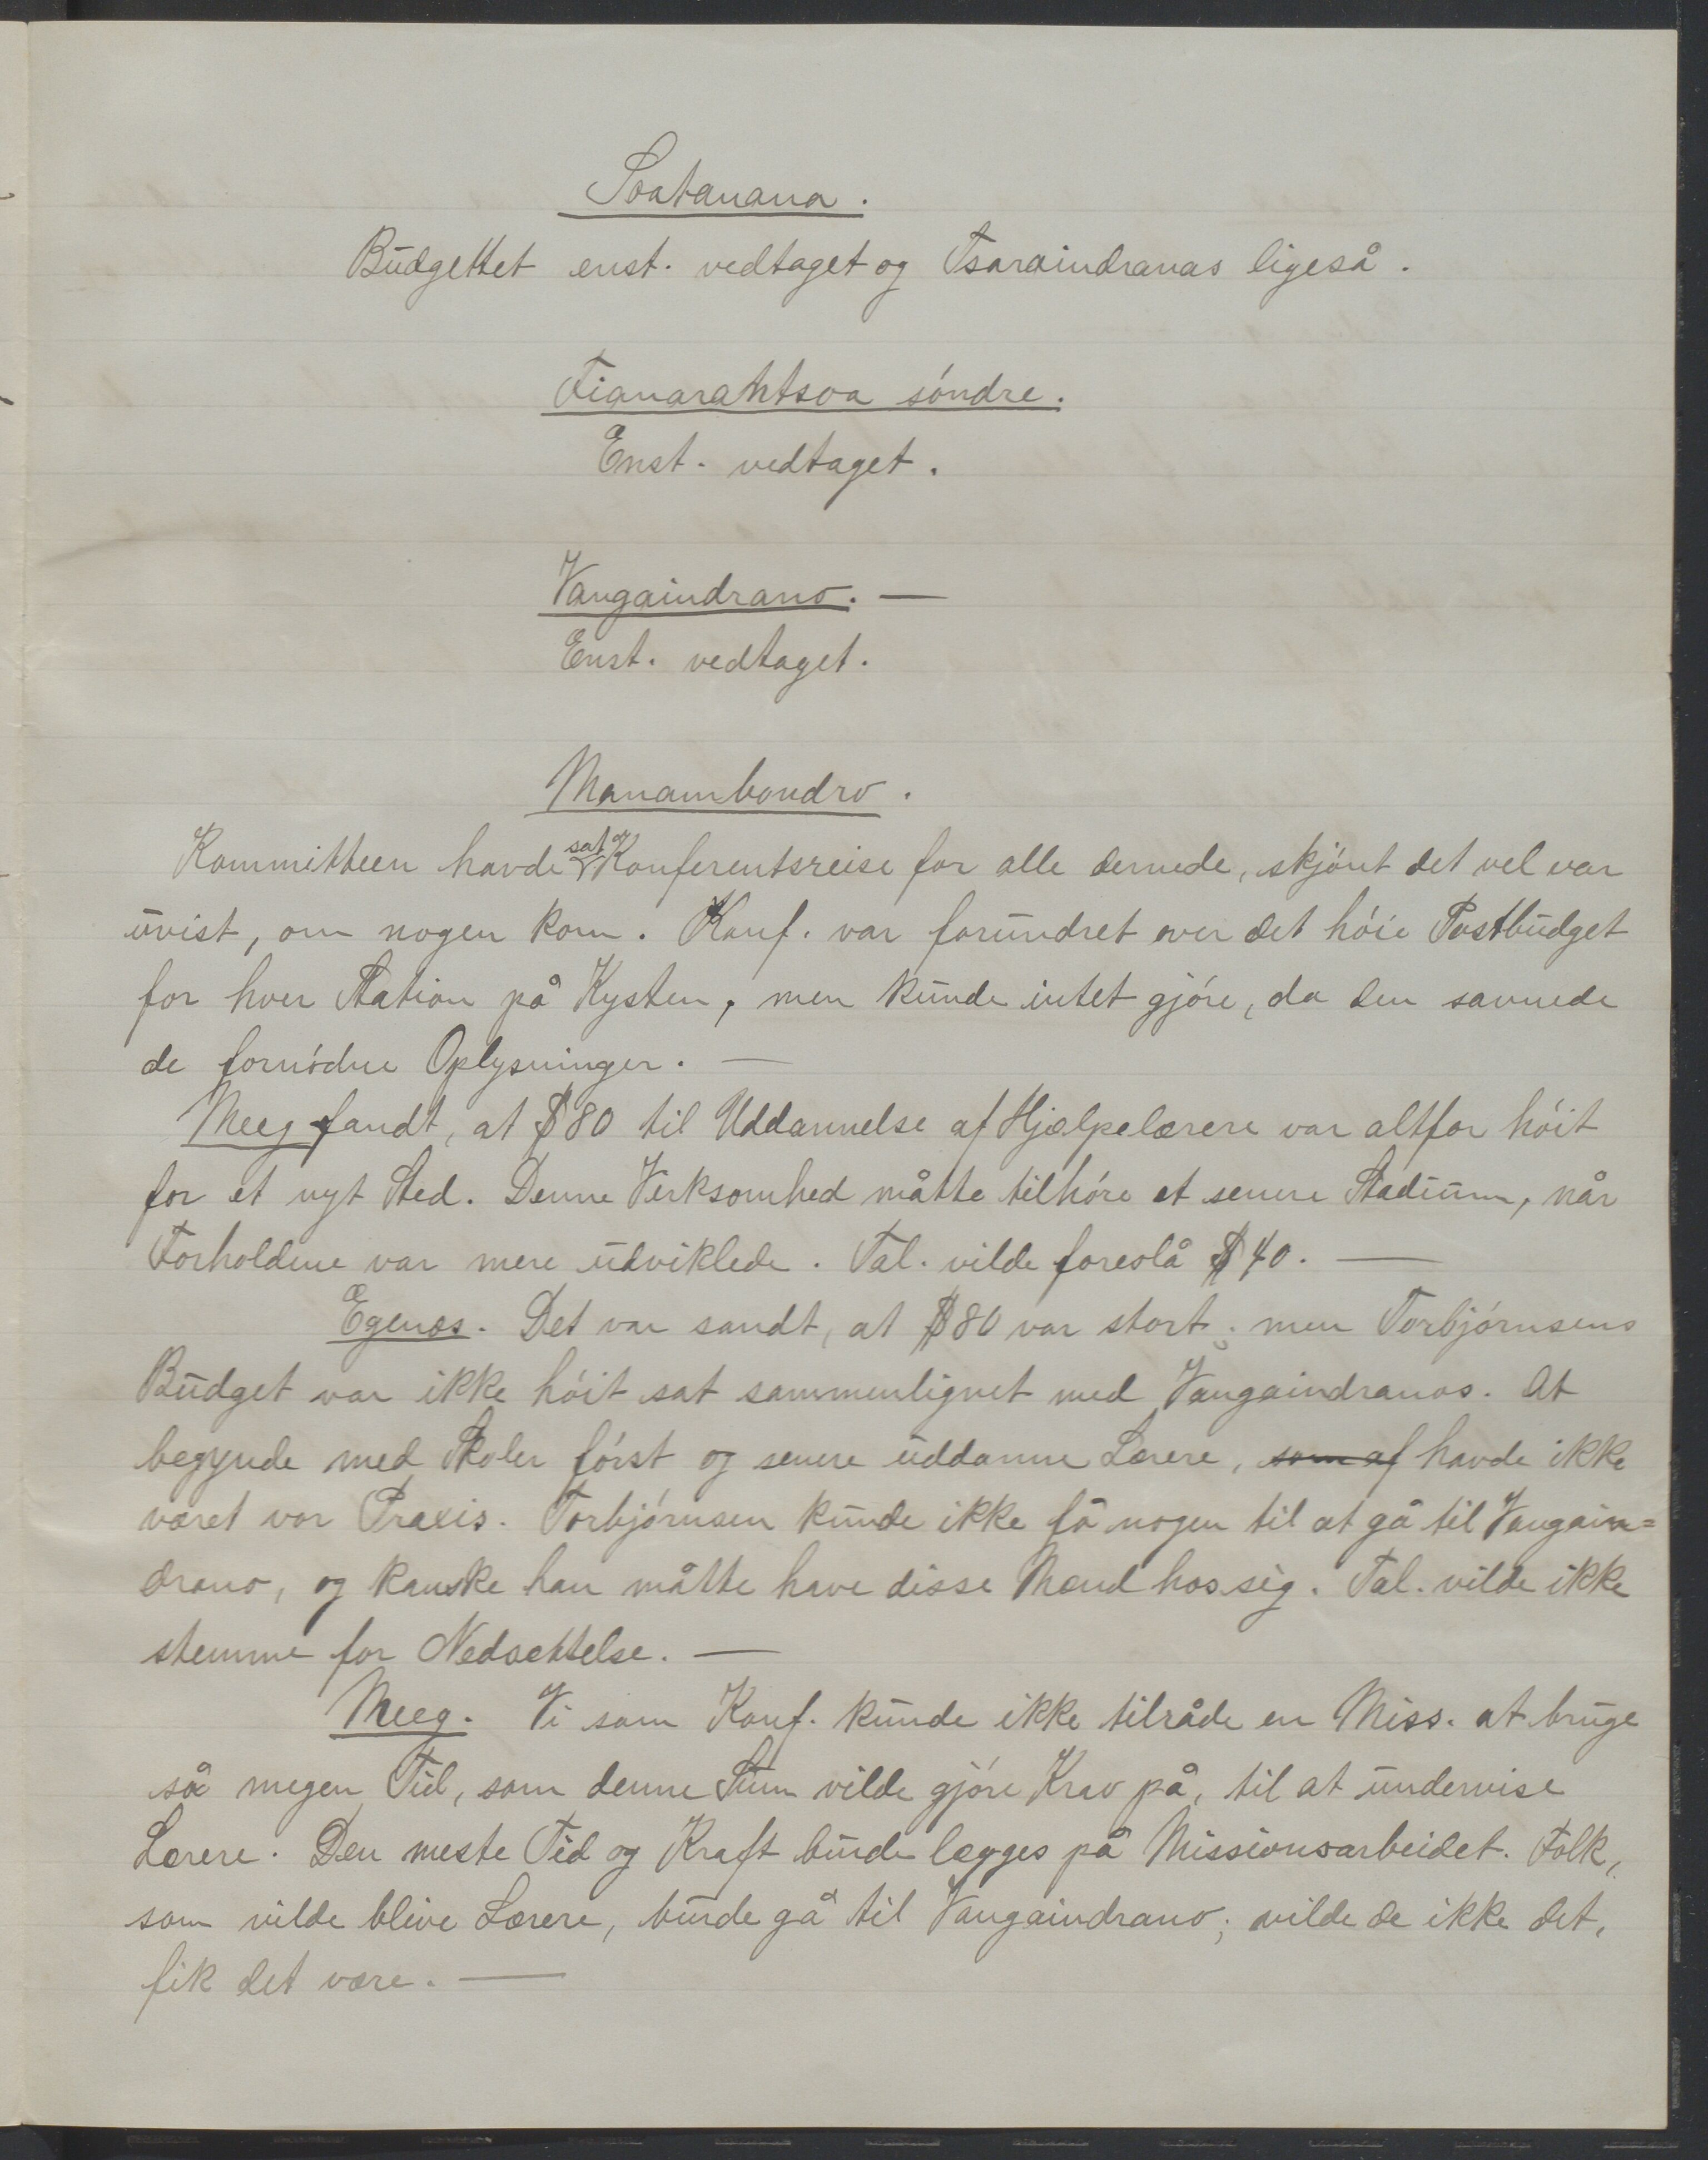 Soatanana.
Budgettet enst. vedtaget og Tsaraindranas ligeså.
Fianarantsoa söndre.
Enst. vedtaget.
Vangaindrano. —
Enst. vedtaget.
Manambondro.
Kommitteen havde sat Konferentsreise for alle dernede, skjönt det vel var
uvist, om nogen kom. Konf. var forundret over det höie Postbudget
for hver Station på Kysten, men kunde intet gjöre, da den savnede
de fornödne Oplysninger. —
Meeg fandt, at $80 til Uddannelse af Hjælpelærere var altfor höit
for et nyt Sted. Denne Virksomhed måtte tilhöre et senere Stadium, når
Forholdene var mere udviklede. Tal. vilde foreslå $40. —
Egenæs. Det var sandt, at $80 var stort; men Torbjörnsens
Budget var ikke höit sat sammenlignet med Vangaindranos. At
begynde med Skoler först og senere uddanne Lærere, som af havde ikke
været vor Praxis. Torbjörnsen kunde ikke få nogen til at gå til Vangain=
drano, og kanske han måtte have disse Mænd hos sig. Tal. vilde ikke
stemme for Nedsættelse. —
Meeg. Vi som Konf. kunde ikke tilråde en Miss. at bruge
så megen Tid, som denne Sum vilde gjöre Krav på, til at undervise
Lærere. Den meste Tid og Kraft burde lægges på Missionsarbeidet. Folk,
som vilde blive Lærere, burde gå til Vangaindrano; vilde de ikke det,
fik det være. —